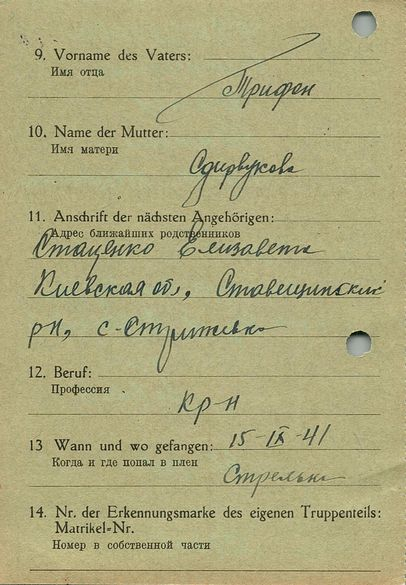 9. Vorname des Vaters:
Имя отца
Трифон
10. Name der Mutter:
Имя матери
11. Anschrift der nächsten Angehörigen:
Адрес ближайших родственников
Стаценко Елизавета
Киевская обл, Ставещинский
рн, с-Стрижевка
12. Beruf:
Профессия
кр-н
13 Wann und wo gefangen: 15-IX-41
Когда и где попал в плен
14. Nr. der Erkennungsmarke des eigenen Truppenteils:
Matrikel=Nr.
Номер в собственной части